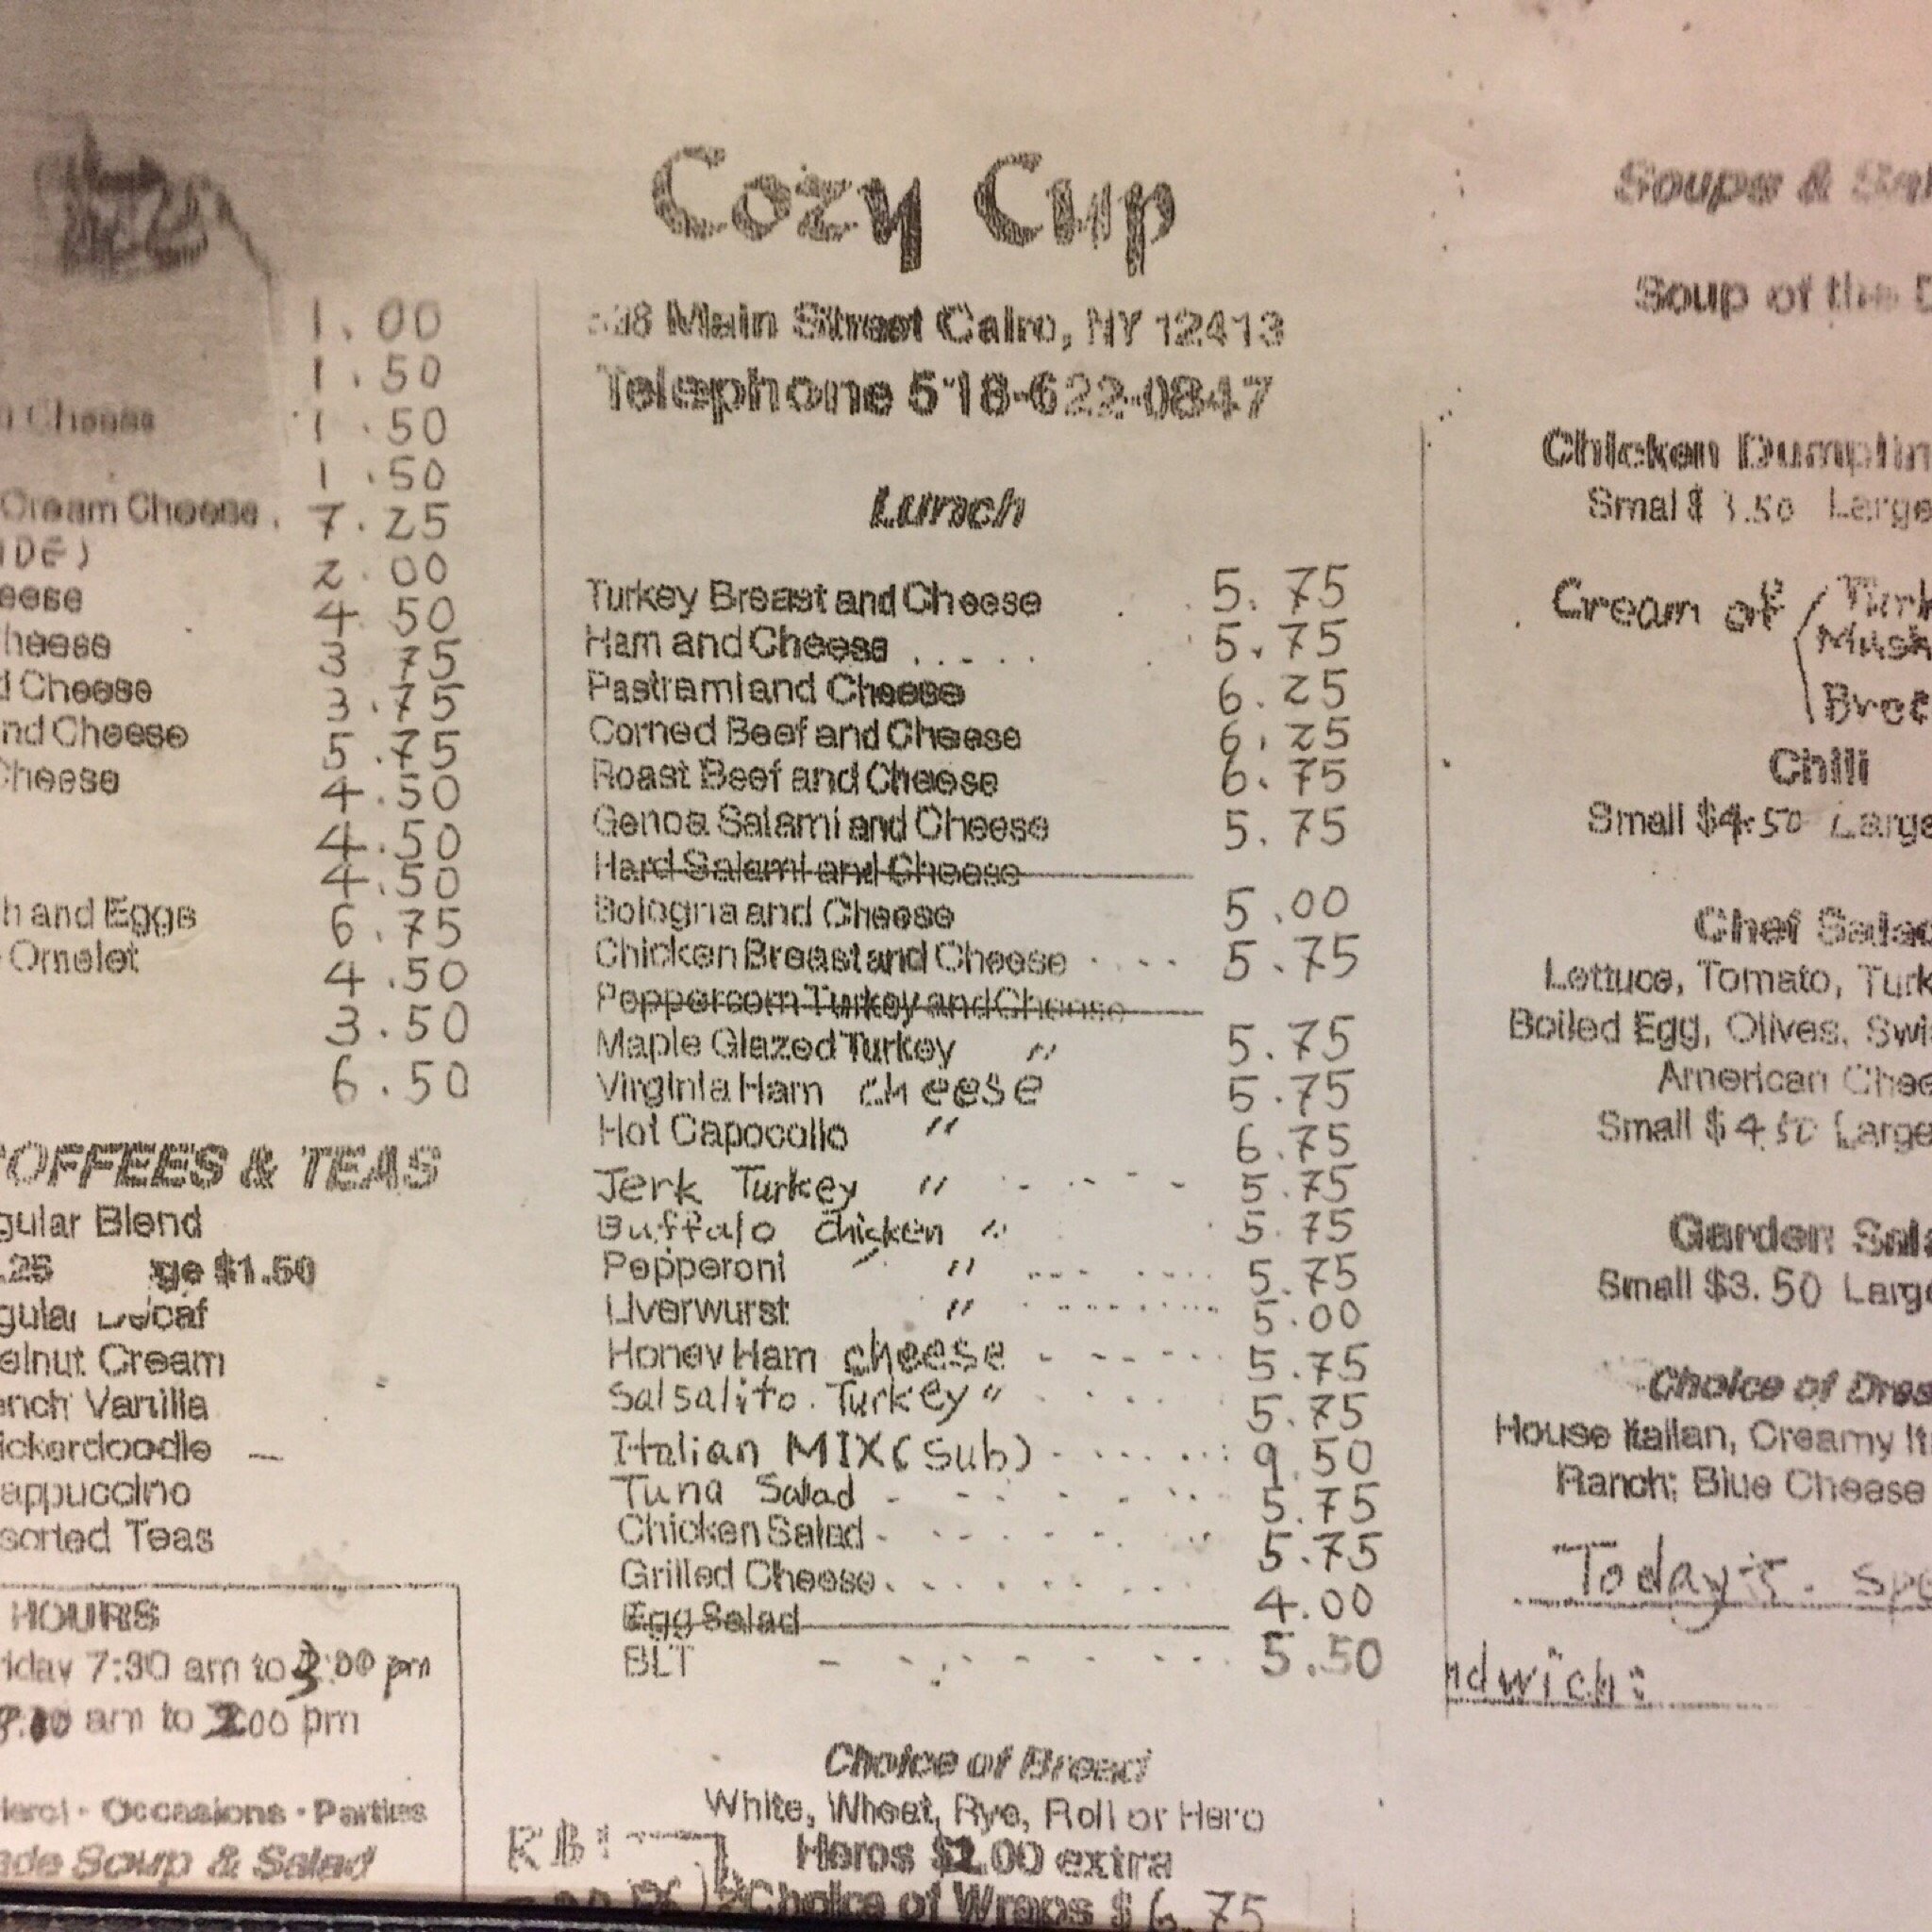 Cozy Cup
Main Street Cairo, NY 12413
Telephone 518-622-0847
1.00
1.50
Cheese 1.50
1.50
Cream Cheese. 7.25
2.00
eese 4.50
heese 3.75
d Cheese 3.75
nd Cheese 5.75
Cheese 4.50
4.50
4.50
h and Eggs 6.75
Omelet 4.50
3.50
6.50
OFFEES & TEAS
gular Blend
.25 ge $1.50
gular Decaf
elnut Cream
ench Vanilla
ickerdoodle
appuccino
sorted Teas
HOURS
riday 7:30 am to 3:00 pm
am to 2:00 pm
Occasions · Parties
ade Soup & Salad
Lunch
Turkey Breast and Cheese 5.75
Ham and Cheese 5.75
Pastrami and Cheese 6.25
Corned Beef and Cheese 6.25
Roast Beef and Cheese 6.75
Genoa Salami and Cheese 5.75
Hard Salami and Cheese
Bologna and Cheese 5.00
Chicken Breast and Cheese 5.75
Peppercorn Turkey and Cheese
Maple Glazed Turkey " 5.75
Virginia Ham cheese 5.75
Hot Capocollo " 6.75
Jerk Turkey " 5.75
Buffalo Chicken " 5.75
Pepperoni " 5.75
Liverwurst " 5.00
Honey Ham cheese 5.75
Salsalito Turkey " 5.75
Italian MIX (Sub) 9.50
Tuna Salad 5.75
Chicken Salad 5.75
Grilled Cheese 4.00
Egg Salad
BLT 5.50
Choice of Bread
White, Wheat, Rye, Roll or Hero
Heros $2.00 extra
Choice of Wraps $6.75
Soups & Sal
Soup of the D
Chicken Dumplin
Smal $ 3.50 Large
Cream of Turk
Mush
Broc
Chili
Small $4.50 Large
Chef Salad
Lettuce, Tomato, Turk
Boiled Egg, Olives, Swi
American Chee
Small $4.50 Large
Garden Sala
Small $3.50 Large
Choice of Dres
House Italian, Creamy It
Ranch, Blue Cheese
Today's spe
ndwich: